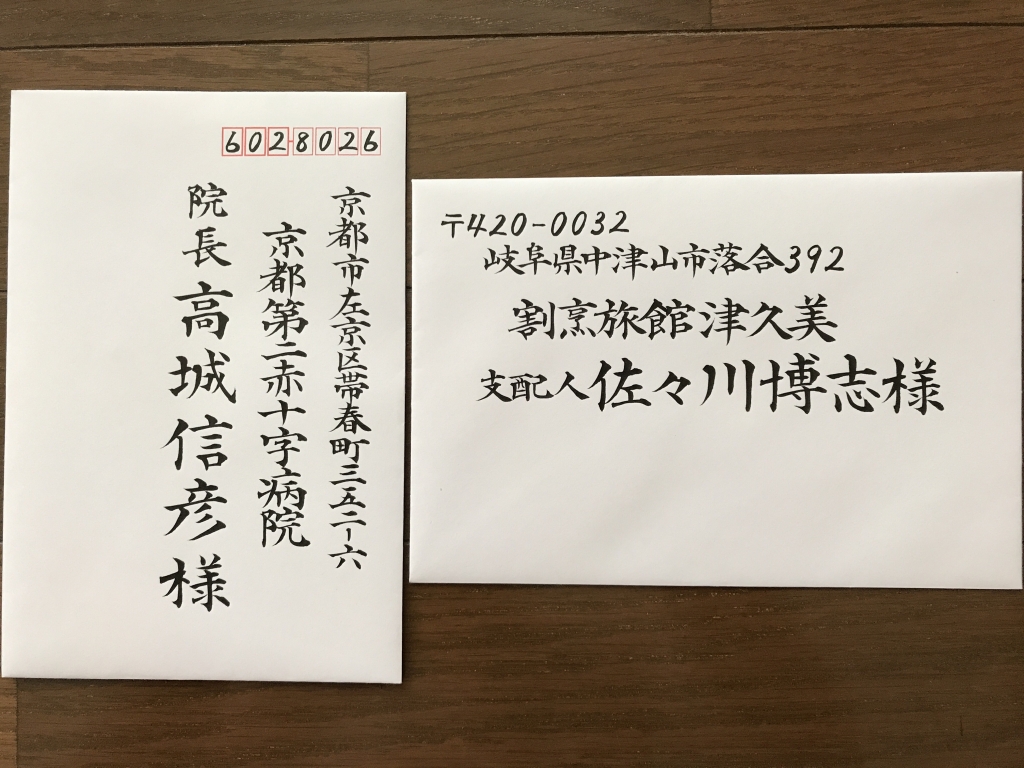 6028026
京都市左京区帯春町三五二-六
京都第二赤十字病院
院長高城信彦様
〒420-0032
岐阜県中津山市落合392
割烹旅館津久美
支配人佐々川博志様